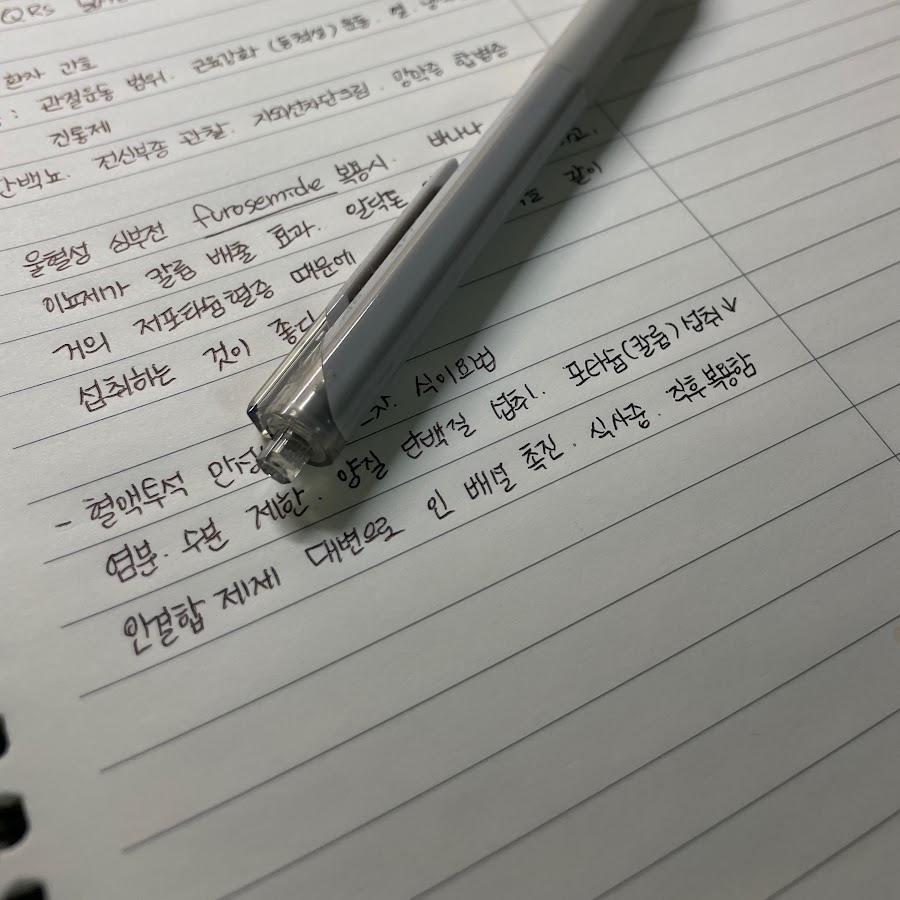 QRs
환자 간호
: 관절운동 범위. 근육강화 (등척성) 운동. 열.
진통제
단백뇨. 전신부종 관찰. 자외선차단크림. 망막증 합병증
울혈성 심부전 furosemide 복용시. 바나나 고,
이뇨제가 칼륨 배출 효과. 알닥톤 같이
거의 저포타슘혈증 때문에
섭취하는 것이 좋다
- 혈액투석 안정 자. 식이요법
염분. 수분 제한. 양질 단백질 섭취. 포타슘(칼륨)섭취↓
인결합 제제 대변으로 인 배설 촉진. 식사중. 직후복용함